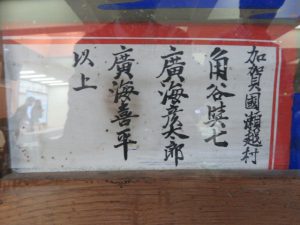 加賀國瀬越村
角谷與七
廣海彦太郎
廣海喜平
以上